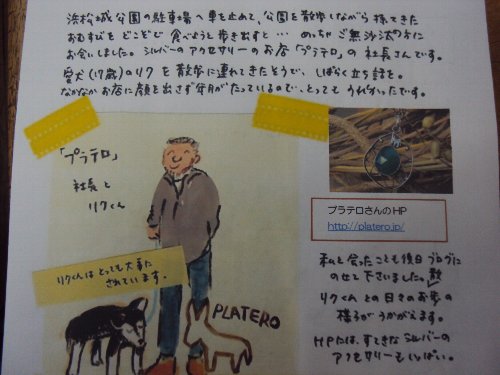 浜松城公園の駐車場へ車を止めて、公園を散歩しながら探てきた
おむすびをどこぞで食べようと歩き出すと… めっちゃご無沙汰の方に
お会いしました。シルバーのアクセサリーのお店「プラテロ」の社長さんです。
愛犬(17歳)のリクを散歩に連れてきたそうで、しばらく立ち話を。
なかなかお店に顔を出さず年月がたっているので、とってもうれしかったです。
「プラテロ」
社長と
リクくん
リクくんはとっても大事に
されています。
PLATERO
プラテロさんのHP
http://platero.jp/
私と会ったことも後日ブログに
のせて下さいました。
リクくんとの日々のお散歩の
様子がうかがえます。
HPには、すてきなシルバーの
アクセサリーもいっぱい。